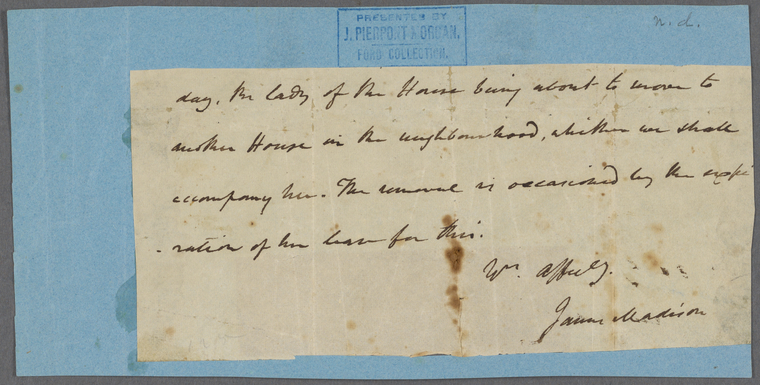 PRESENTED BY
J. PIERPONT MORGAN,
FORD COLLECTION.
n.d.
day, the lady of the House being about to move to
another House in the neighbourhood, whither we shall
accompany her. The removal is occasioned by the expi
-ration of her lease for this.
Yrs. Affecly.
James Madison